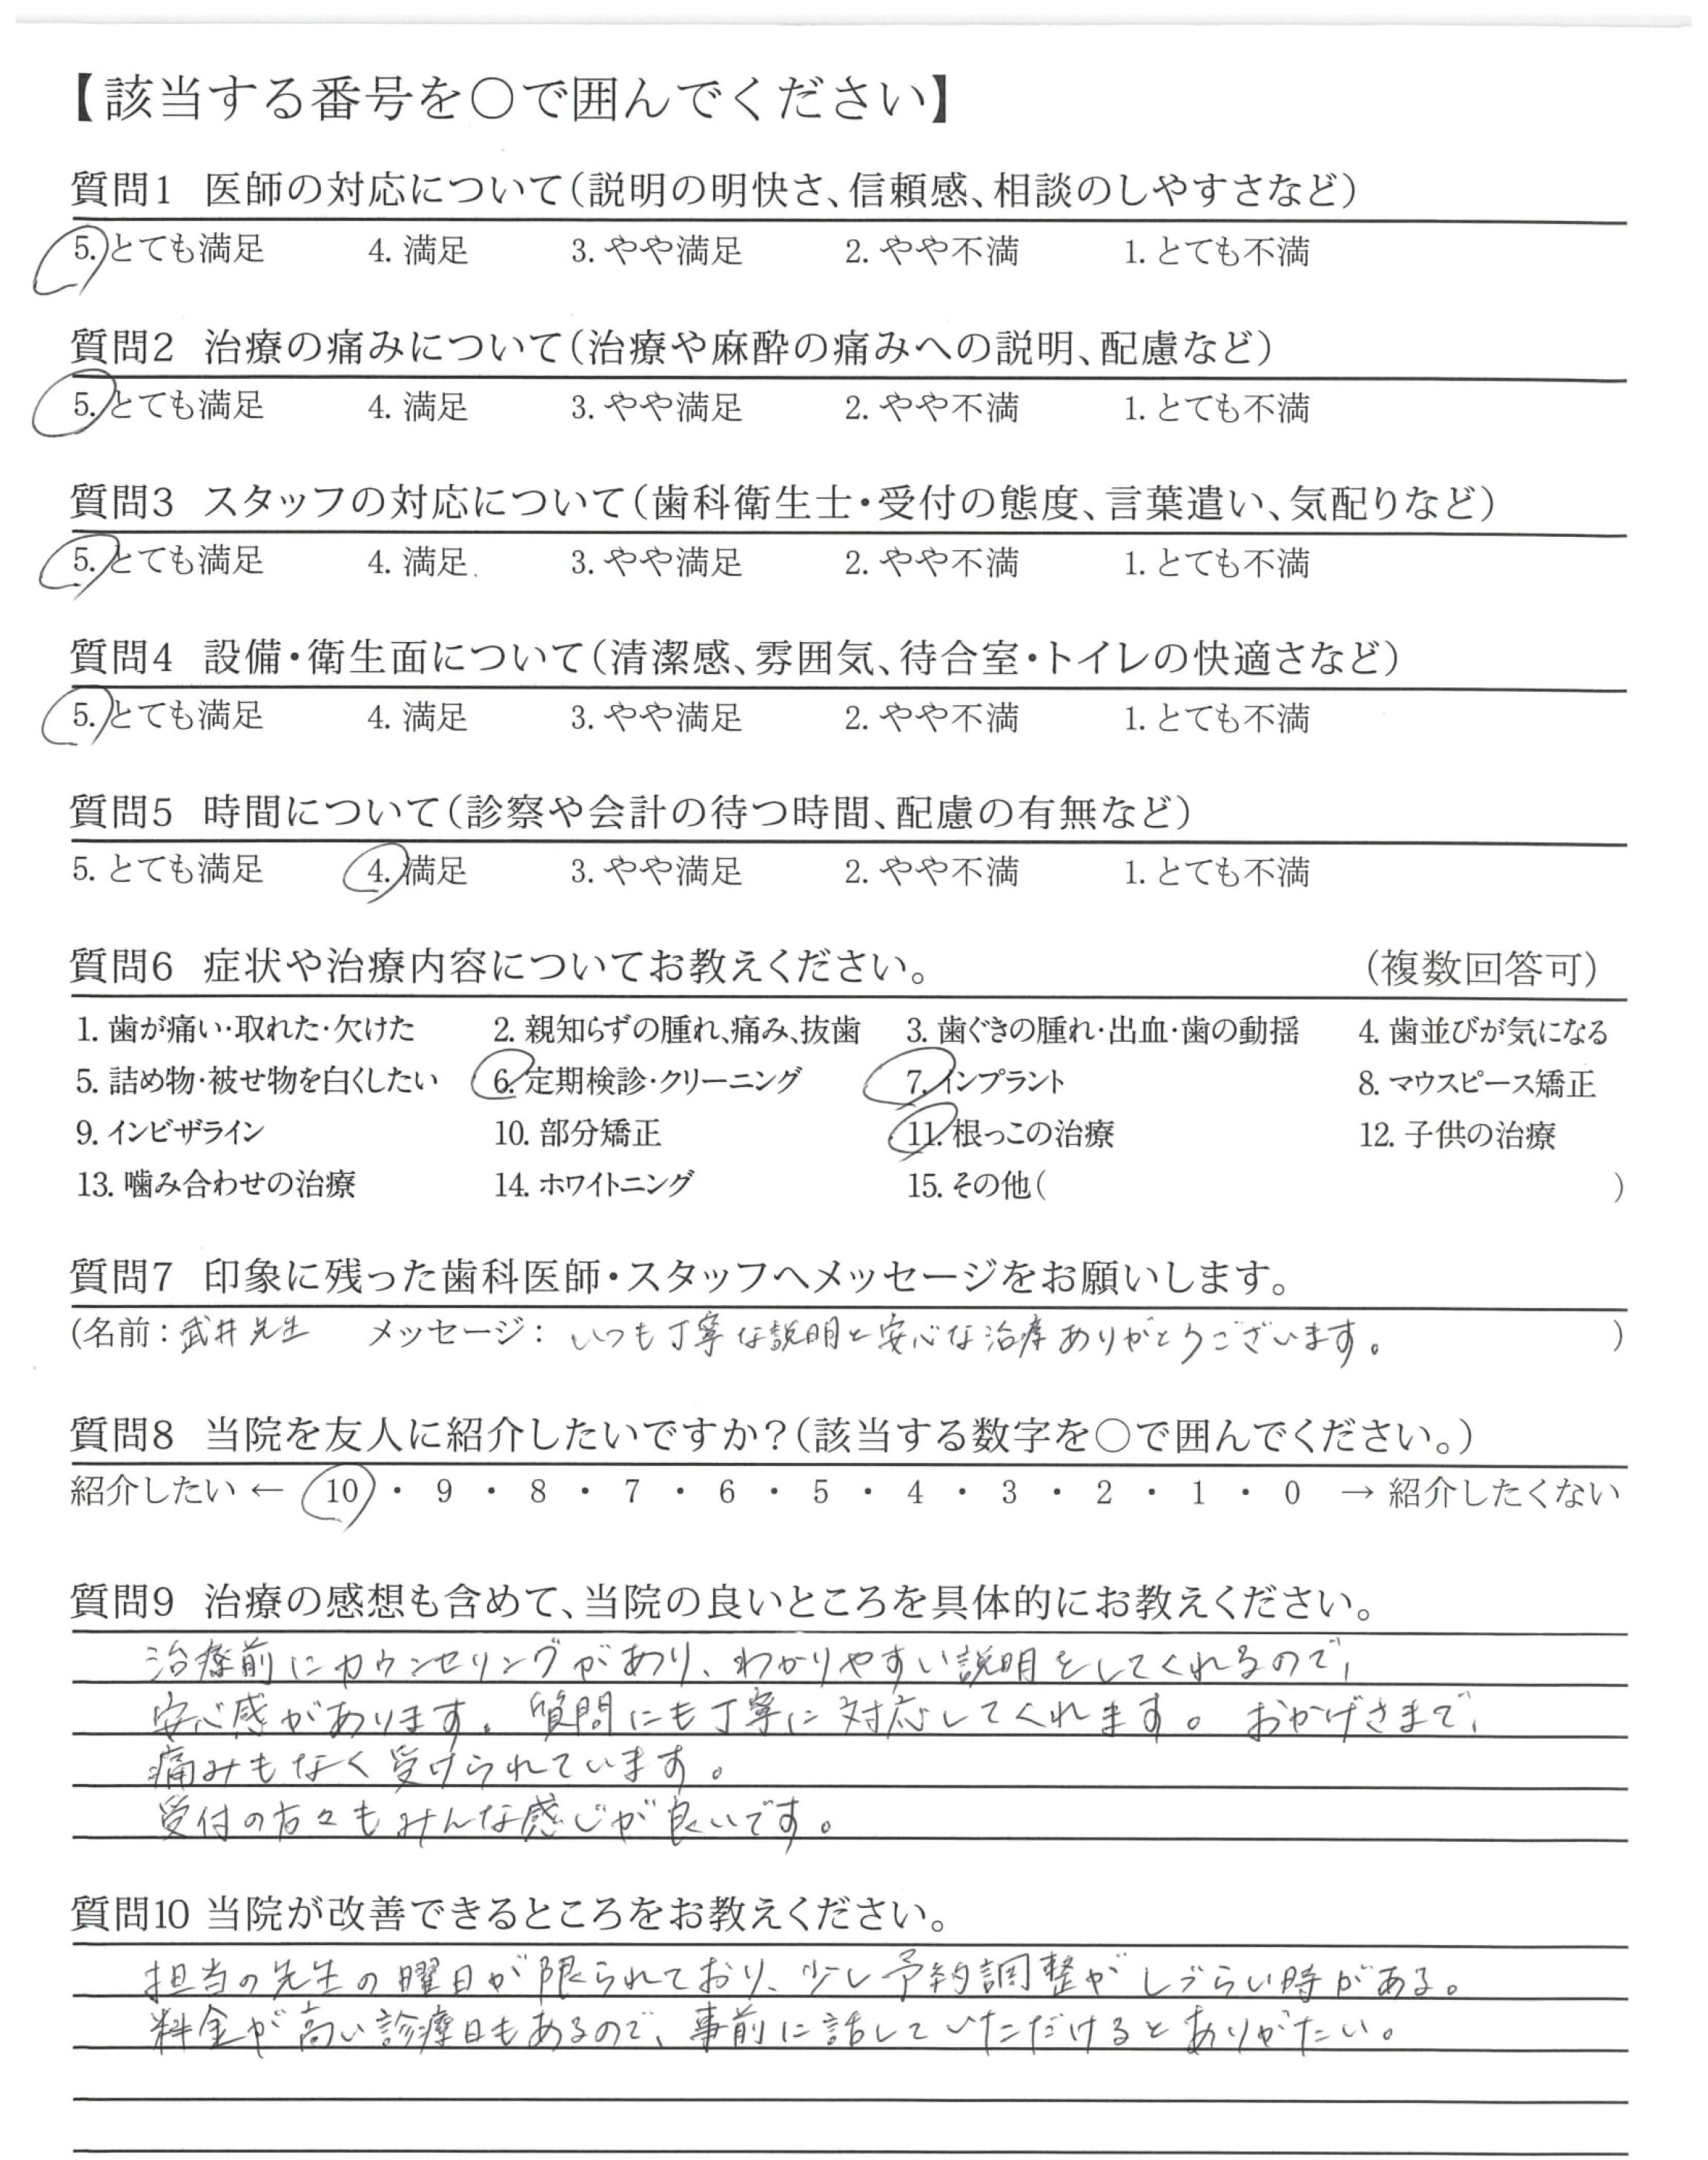 【該当する番号を○で囲んでください】
質問1 医師の対応について(説明の明快さ、信頼感、相談のしやすさなど)
5. とても満足 4. 満足 3. やや満足 2. やや不満 1. とても不満
質問2 治療の痛みについて(治療や麻酔の痛みへの説明、配慮など)
5. とても満足 4. 満足 3. やや満足 2. やや不満 1. とても不満
質問3 スタッフの対応について(歯科衛生士・受付の態度、言葉遣い、気配りなど)
5. とても満足 4. 満足 3. やや満足 2. やや不満 1. とても不満
質問4 設備・衛生面について(清潔感、雰囲気、待合室・トイレの快適さなど)
5. とても満足 4. 満足 3. やや満足 2. やや不満 1. とても不満
質問5 時間について(診察や会計の待つ時間、配慮の有無など)
5. とても満足 4. 満足 3. やや満足 2. やや不満 1. とても不満
質問6 症状や治療内容についてお教えください。 (複数回答可)
1. 歯が痛い・取れた・欠けた 2. 親知らずの腫れ、痛み、抜歯 3. 歯ぐきの腫れ・出血・歯の動揺 4. 歯並びが気になる
5. 詰め物・被せ物を白くしたい 6. 定期検診・クリーニング 7. インプラント 8. マウスピース矯正
9. インビザライン 10. 部分矯正 11. 根っこの治療 12. 子供の治療
13. 噛み合わせの治療 14. ホワイトニング 15. その他( )
質問7 印象に残った歯科医師・スタッフへメッセージをお願いします。
(名前：武井先生 メッセージ：いつも丁寧な説明と安心な治療ありがとうございます。 )
質問8 当院を友人に紹介したいですか?(該当する数字を○で囲んでください。)
紹介したい ← 10 ・ 9 ・ 8 ・ 7 ・ 6 ・ 5 ・ 4 ・ 3 ・ 2 ・ 1 ・ 0 → 紹介したくない
質問9 治療の感想も含めて、当院の良いところを具体的にお教えください。
治療前にカウンセリングがあり、わかりやすい説明をしてくれるので、
安心感があります。質問にも丁寧に対応してくれます。おかげさまで、
痛みもなく受けられています。
受付の方々もみんな感じが良いです。
質問10 当院が改善できるところをお教えください。
担当の先生の曜日が限られており、少し予約調整がしづらい時がある。
料金が高い診療日もあるので、事前に話していただけるとありがたい。